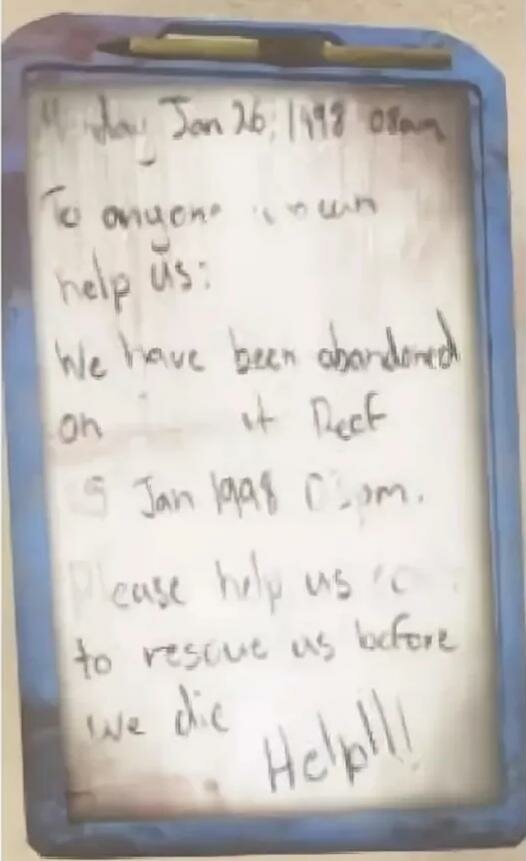 Monday Jan 26, 1998 08am
To anyone can
help us:
We have been abandoned
on Reef
Jan 1998 pm.
Please help us
to rescue us before
we die
Help!!!